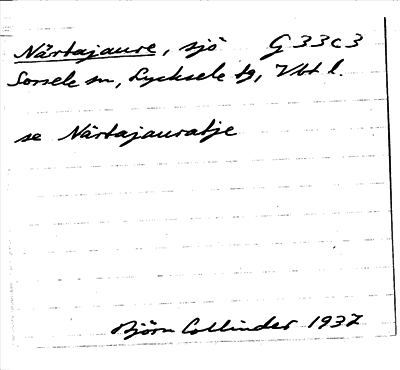 Närtajaure, sjö G 33 c 3
Sorsele sn, Lycksele tg, Vbt l.
se Närtajauratje
Björn Collinder 1937